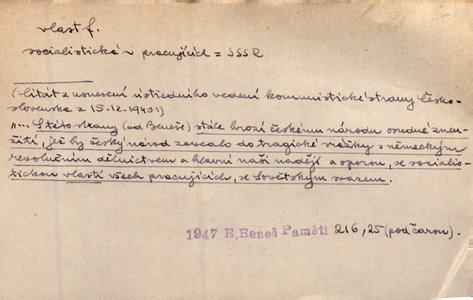 vlast f.
socialistická v pracujících = SSSR
(Citát z usnesení ústředního vedení kommunistické strany Česko-
slovenska z 15.12.1940:)
"... S této strany (od Beneše) stále hrozí českému národu osudné zneu-
žití, jež by český národ zavedlo do tragické srážky s německým
revolučním dělnictvem a hlavní naší nadějí a oporou, se socialis-
tickou vlastí všech pracujících, se Sovětským svazem.
1947 E. Beneš Paměti 216, 25 (pod čarou).